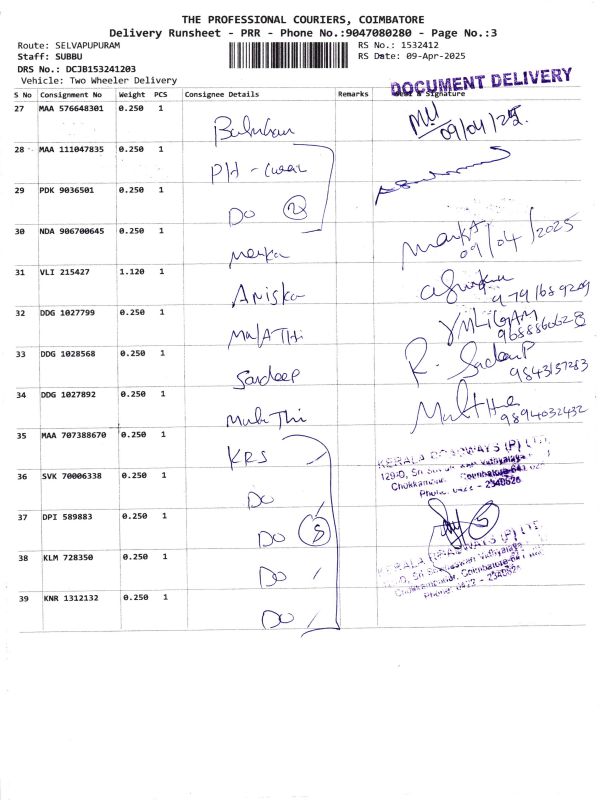 THE PROFESSIONAL COURIERS, COIMBATORE
Delivery Runsheet - PRR - Phone No.:9047080280 - Page No.:3
Route: SELVAPUPURAM
Staff: SUBBU
DRS No.: DCJB153241203
Vehicle: Two Wheeler Delivery
RS No.: 1532412
RS Date: 09-Apr-2025
DOCUMENT DELIVERY
S No Consignment No Weight PCS Consignee Details Remarks Signature
27 MAA 576648301 0.250 1 09/04/25
28 MAA 111047835 0.250 1 PH -
29 PDK 9036501 0.250 1 DO 2
30 NDA 906700645 0.250 1 09/04/2025
31 VLI 215427 1.120 1 Aniska
32 DDG 1027799 0.250 1
33 DDG 1028568 0.250 1 Sardeep R. 9843157283
34 DDG 1027892 0.250 1 9894032432
35 MAA 707388670 0.250 1 KRS KERALA ROADWAYS (P) LTD
36 SVK 70006338 0.250 1 DO Phone: 0422 - 2340626
37 DPI 589883 0.250 1 DO 5
38 KLM 728350 0.250 1 DO KERALA ROADWAYS (P) LTD
39 KNR 1312132 0.250 1 DO